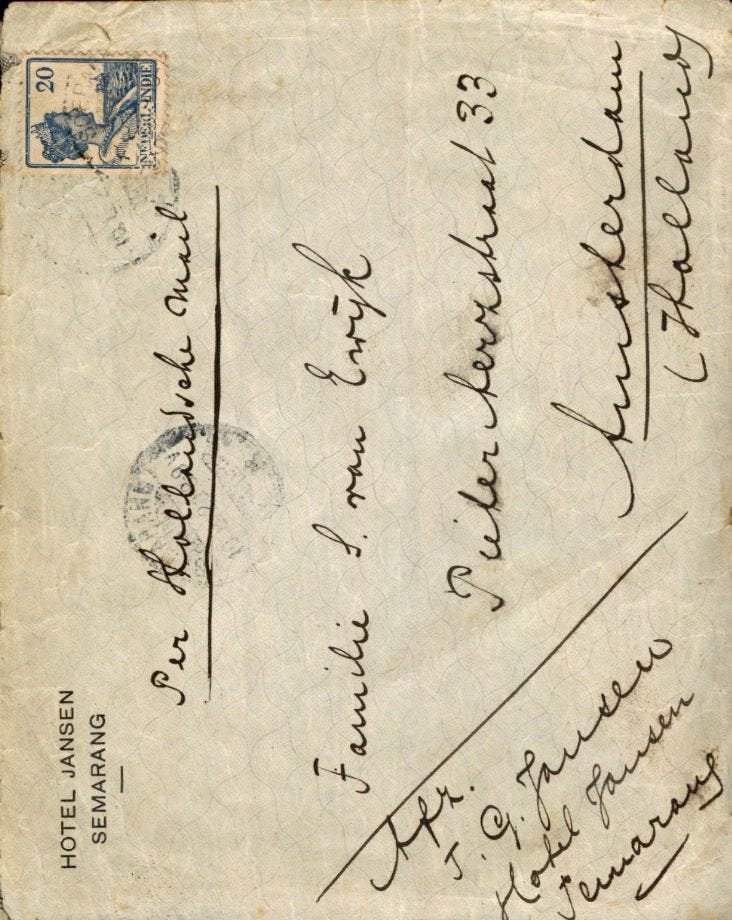 HOTEL JANSEN
SEMARANG
20
NEDERL-INDIE
Per Hollandsche Mail
Familie S. van Ewijk
Pieter Aertzstraat 33
Amsterdam
(Holland)
Afz.
J. G. Jansen
Hotel Jansen
Semarang